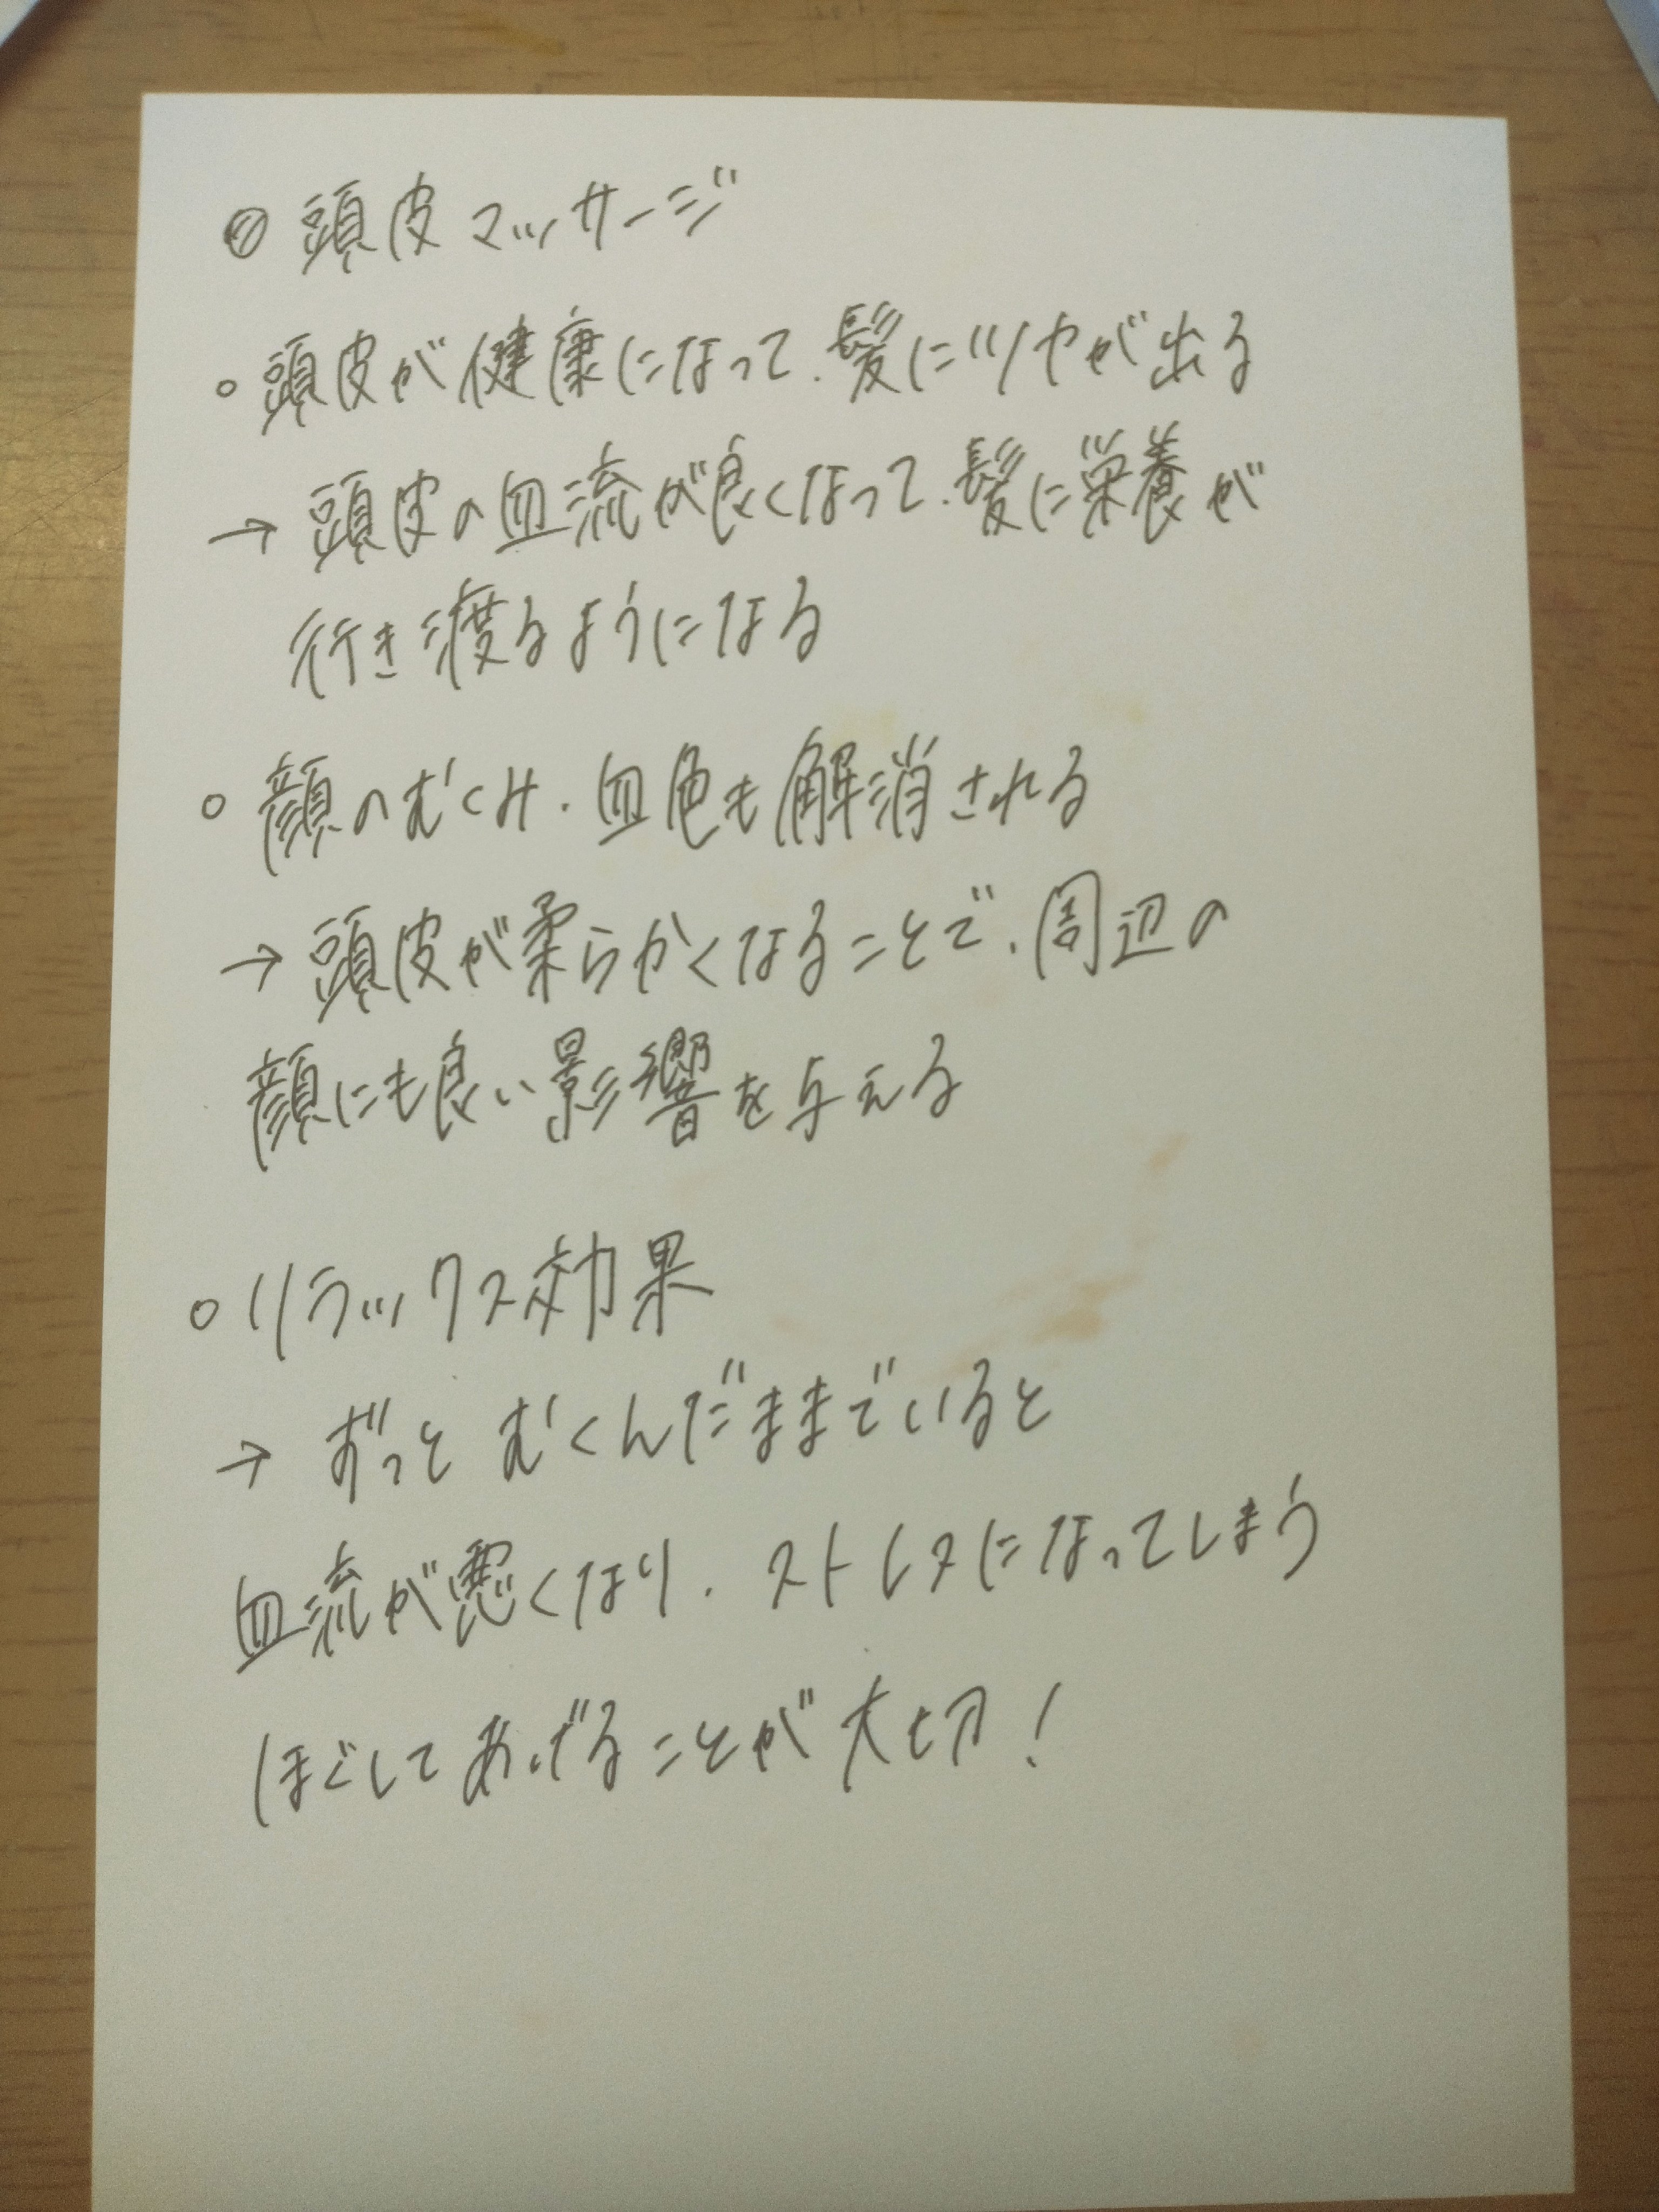 ◎ 頭皮マッサージ
○ 頭皮が健康になって、髪にツヤが出る
→ 頭皮の血流が良くなって、髪に栄養が
行き渡るようになる
○ 顔のむくみ、血色も解消される
→ 頭皮が柔らかくなることで、周辺の
顔にも良い影響を与える
○ リラックス効果
→ ずっと むくんだままでいると
血流が悪くなり、ストレスになってしまう
ほぐしてあげることが大切!